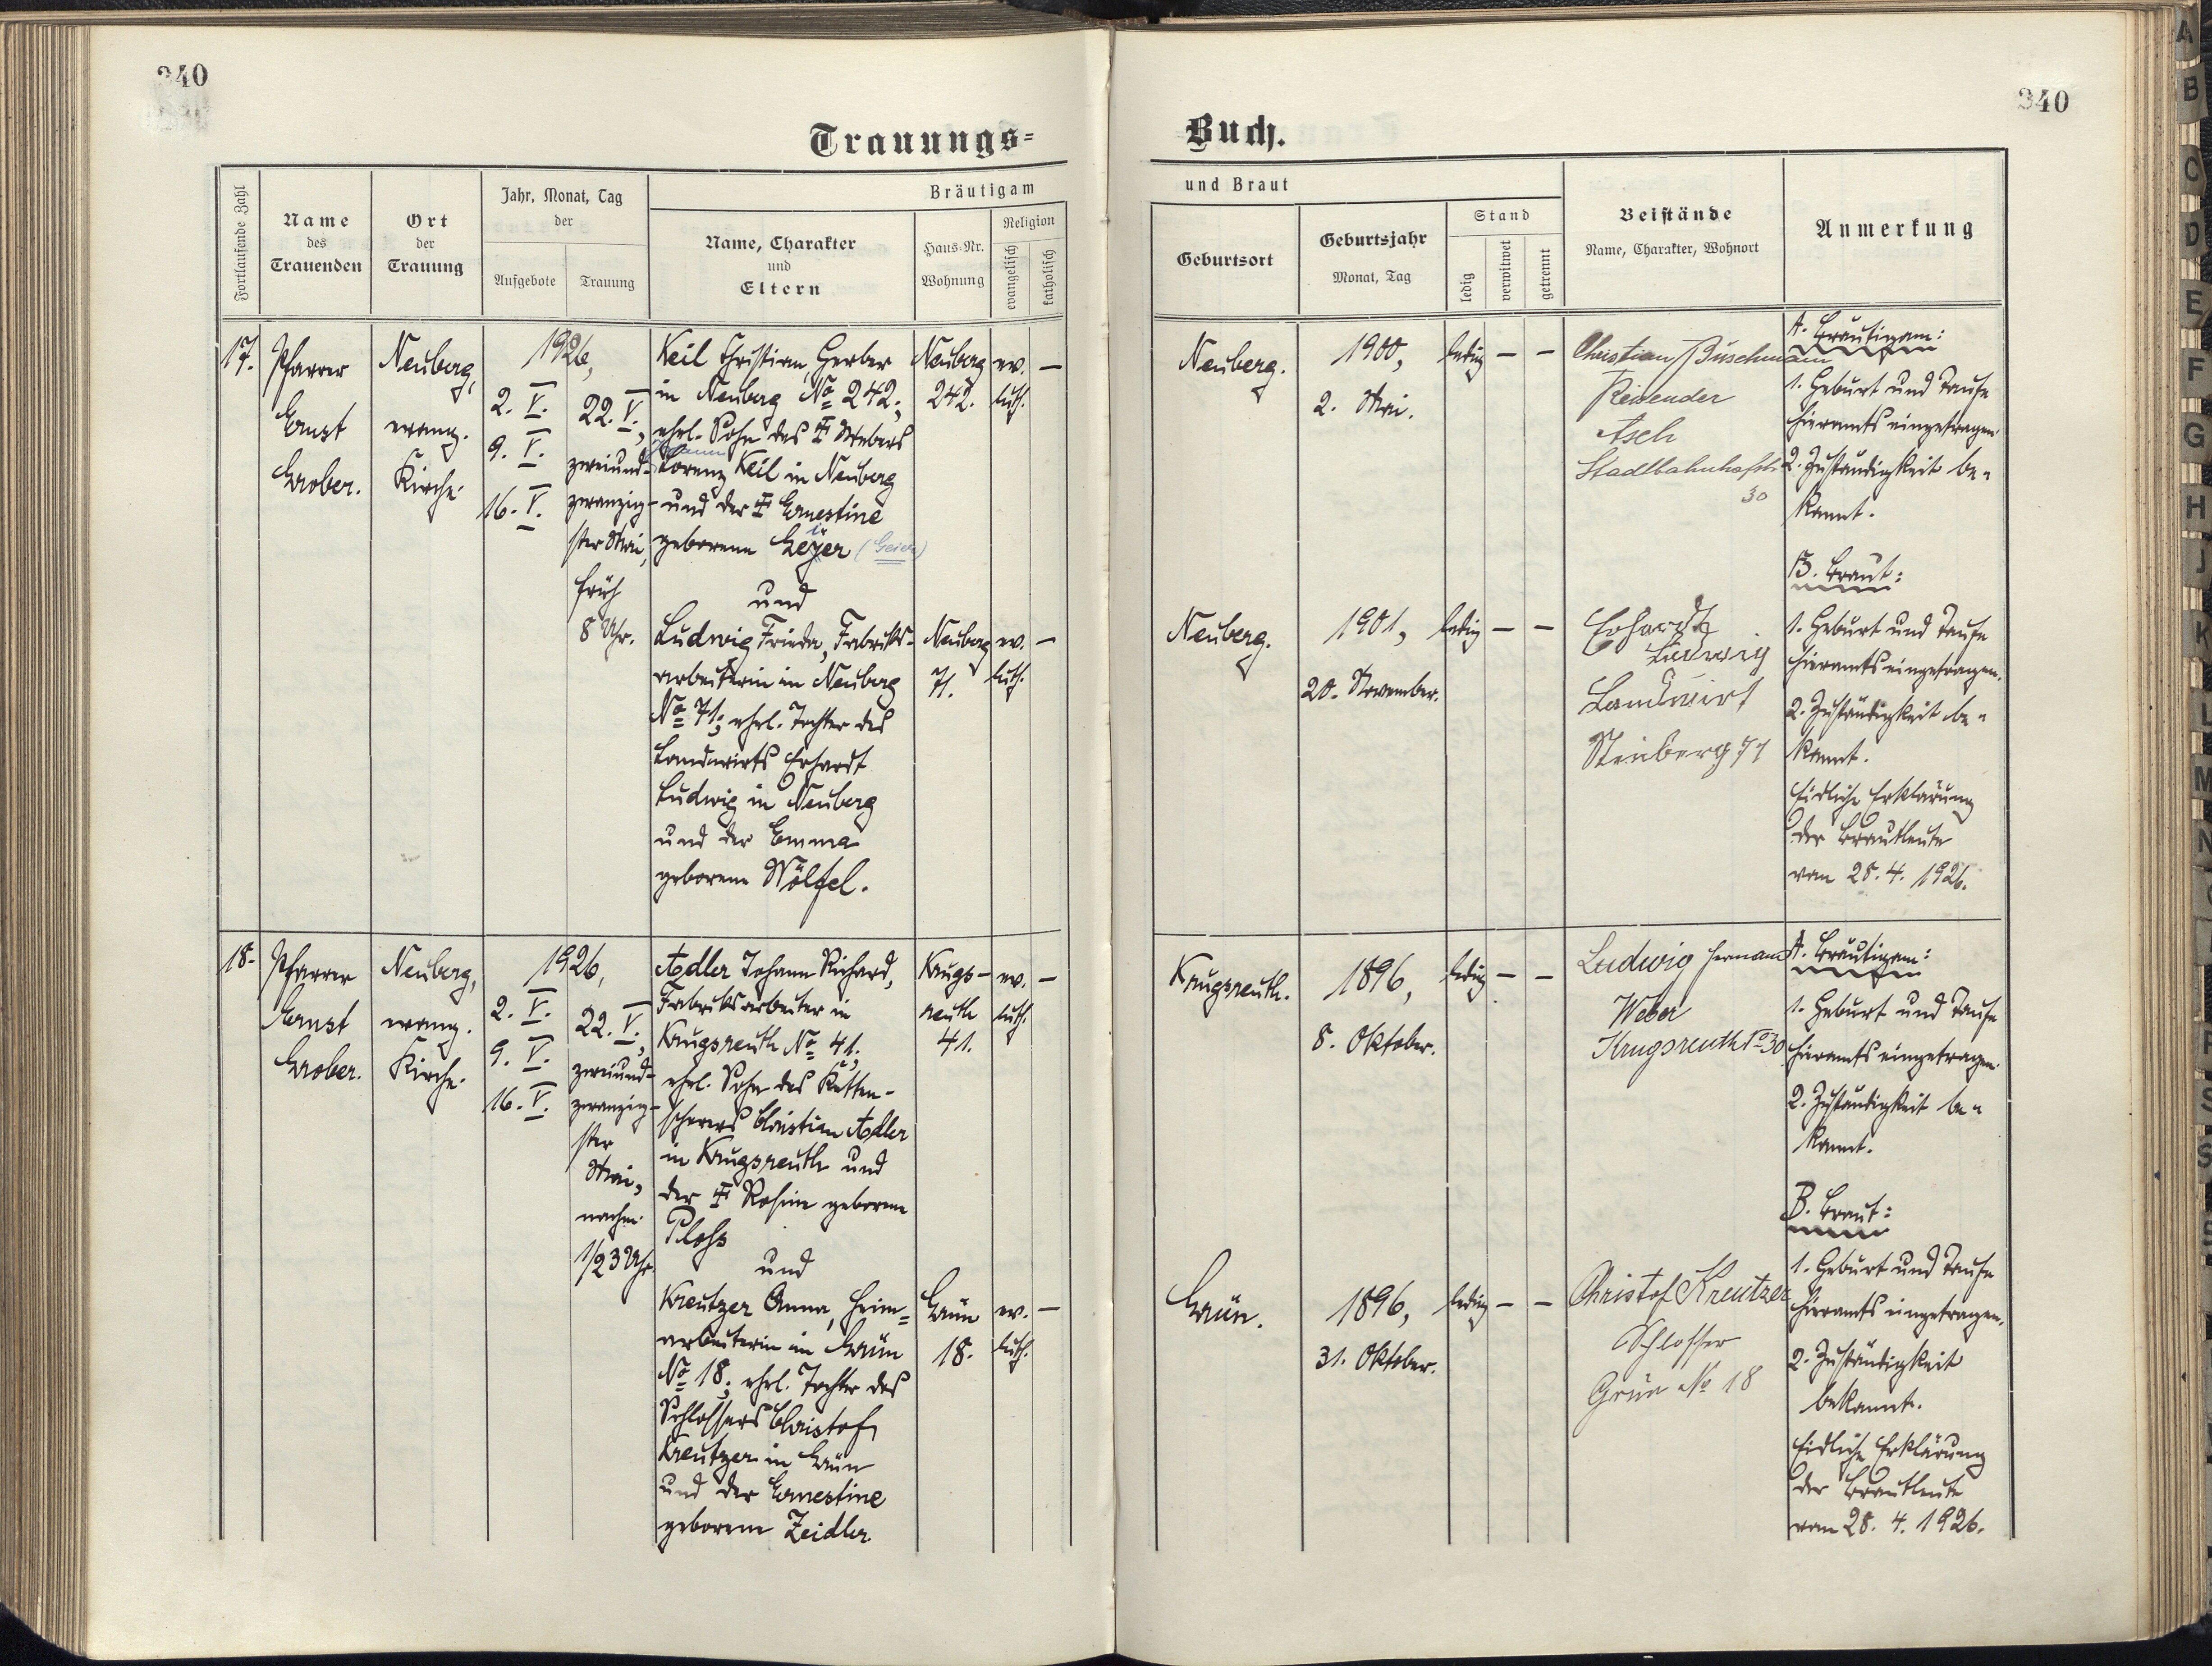 340
340
Trauungs=
Buch.
Fortlaufende Zahl
Name
des
Trauenden
Ort
der
Trauung
Jahr, Monat, Tag
der
Aufgebote
Trauung
Bräutigam
Name, Charakter
und
Eltern
Haus-Nr.
Wohnung
Religion
evangelisch
katholisch
und Braut
Geburtsort
Geburtsjahr
Monat, Tag
Stand
ledig
verwitwet
getrennt
Beistände
Name, Charakter, Wohnort
Anmerkung
17.
Pfarrer
Ernst
Grober.
Neuberg,
evang.
Kirche.
1926,
2. V.
9. V.
16. V.
22. V.,
zweiund-
zwanzig-
ster Mai,
früh
8 Uhr.
Keil Christian, Gerber
in Neuberg No 242;
ehrl. Sohn des ‡ Webers
Johann
Lorenz Keil in Neuberg
und der ‡ Ernestine
geborene Geyer (Geier)
und
Ludwig Frieda, Fabriks-
arbeiterin in Neuberg
No 71; ehrl. Tochter des
Landwirts Erhardt
Ludwig in Neuberg
und der Emma
geborene Wölfel.
Neuberg
242.
ev.
luth.
—
Neuberg
71.
ev.
luth.
—
Neuberg.
1900,
2. Mai.
ledig — —
Christian Büschmann
Reisender
Asch
Stadtbahnhofstr.
30
A. Bräutigam:
1. Geburt und Taufe
hieramts eingetragen.
2. Zuständigkeit be-
kannt.
B. Braut:
Neuberg.
1901,
20. November.
ledig — —
Erhardt
Ludwig
Landwirt
Neuberg 71
1. Geburt und Taufe
hieramts eingetragen.
2. Zuständigkeit be-
kannt.
Eidliche Erklärung
der Brautleute
vom 28. 4. 1926.
18.
Pfarrer
Ernst
Grober.
Neuberg,
evang.
Kirche.
1926,
2. V.
9. V.
16. V.
22. V.,
zweiund-
zwanzig-
ster
Mai,
nachm.
1/2 3 Uhr.
Adler Johann Richard,
Fabriksarbeiter in
Krugsreuth No 41;
ehrl. Sohn des Ketten-
scherers Christian Adler
in Krugsreuth und
der ‡ Rosine geborene
Ploß
und
Kreutzer Anna, Heim=
arbeiterin in Grün
No 18; ehrl. Tochter des
Schlossers Christof
Kreutzer in Grün
und der Ernestine
geborene Zeidler
Krugs-
reuth
41.
ev.
luth.
—
Grün
18.
ev.
luth.
—
Krugsreuth.
1896,
8. Oktober.
ledig — —
Ludwig Hermann
Weber
Krugsreuth No 30
A. Bräutigam:
1. Geburt und Taufe
hieramts eingetragen.
2. Zuständigkeit be-
kannt.
B. Braut:
Grün.
1896,
31. Oktober.
ledig — —
Christof Kreutzer
Schlosser
Grün No 18
1. Geburt und Taufe
hieramts eingetragen.
2. Zuständigkeit
bekannt.
Eidliche Erklärung
der Brautleute
vom 28. 4. 1926.
A
B
C
D
E
F
G
H
J
K
L
M
N
P
R
S